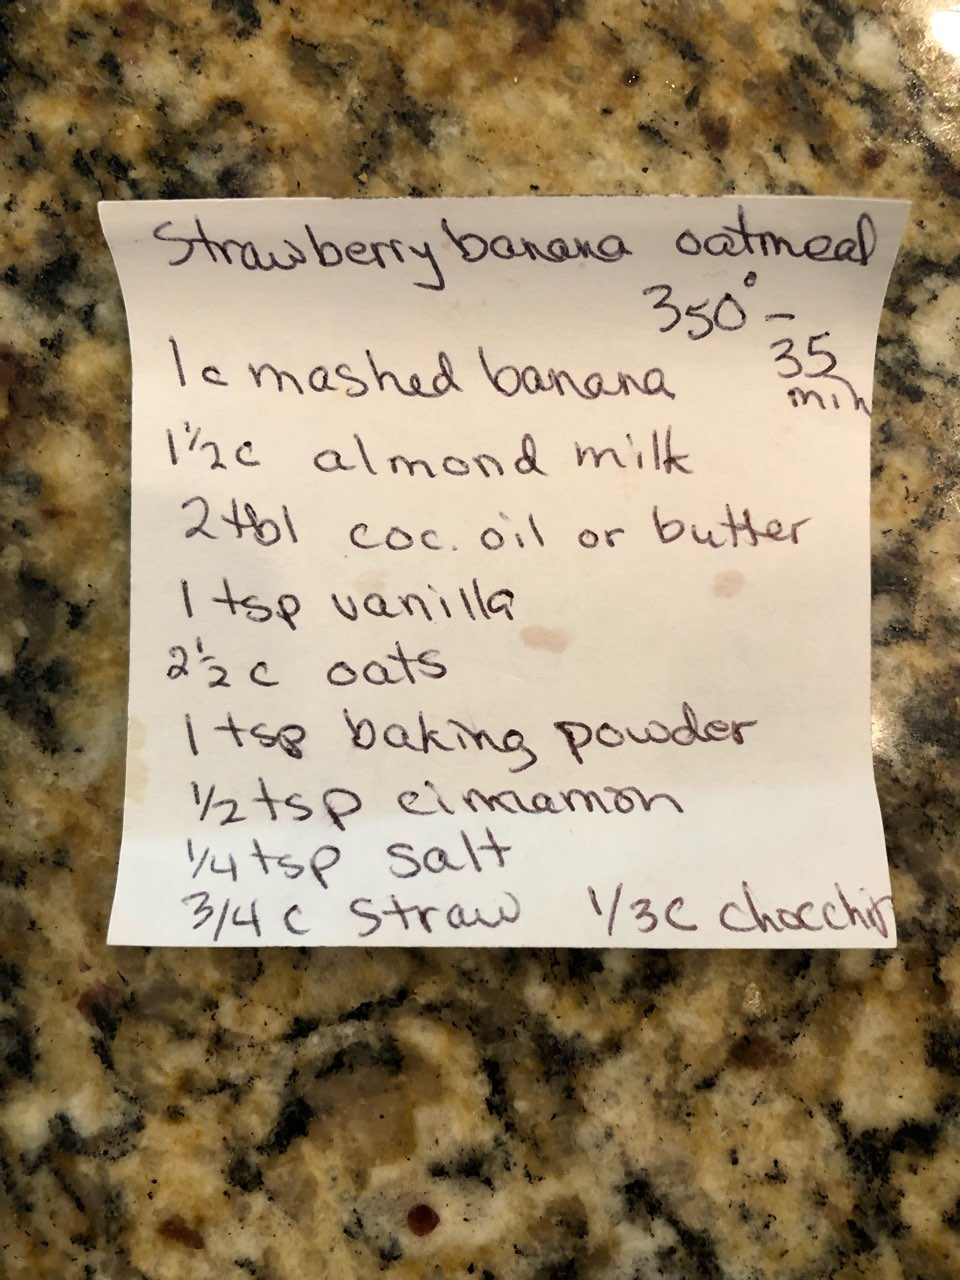 Strawberry banana oatmeal
350° -
35
min
1c mashed banana
1 1/2 c almond milk
2 tbl coc. oil or butter
1 tsp vanilla
2 1/2 c oats
1 tsp baking powder
1/2 tsp cinnamon
1/4 tsp salt
3/4 c straw 1/3 c chocchip